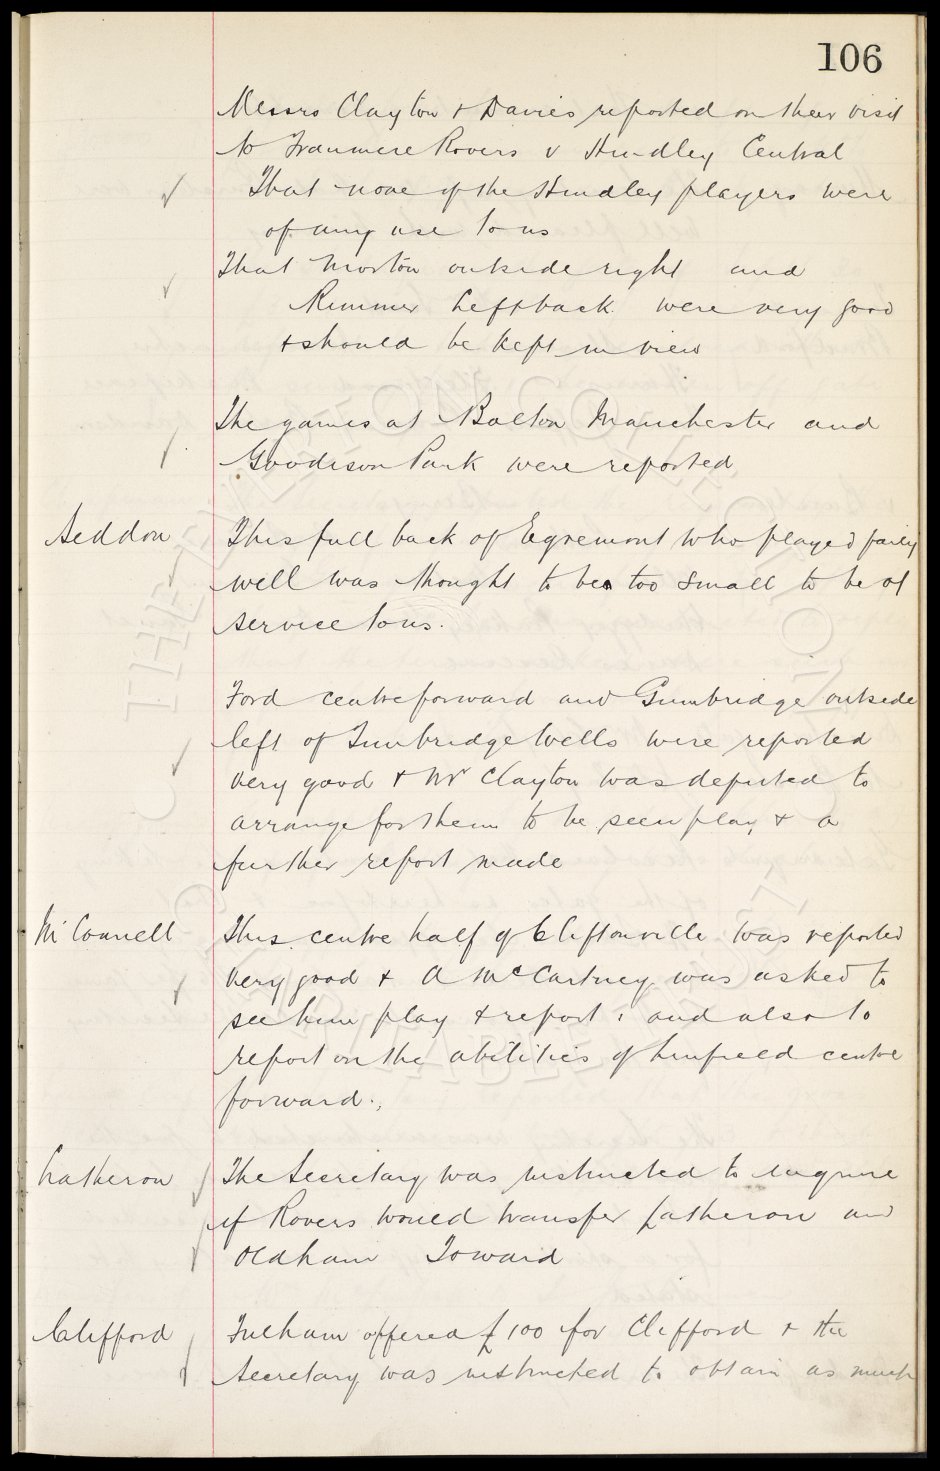 106
Messrs Clayton & Davies reported on their visit
to Tranmere Rovers v Hindley Central
That none of the Hindley players were
of any use to us
That Morton outside right and
Rimmer Left back were very good
& should be kept in view
The games at Bolton Manchester and
Goodison Park were reported
Seddon
This full back of Egremont who played fairly
well was thought to be too small to be of
service to us.
Ford centre forward and Gumbridge outside
left of Tunbridge Wells were reported
very good & Mr Clayton was deputed to
arrange for them to be seen play & a
further report made
McConnell
This centre half of Cliftonville was reported
very good & A McCartney was asked to
see him play & report, and also to
report on the abilities of Linfield centre
forward.
Latheron
The Secretary was instructed to enquire
if Rovers would transfer Latheron and
Oldham Toward
Clifford
Fulham offered £100 for Clifford & the
Secretary was instructed to obtain as much